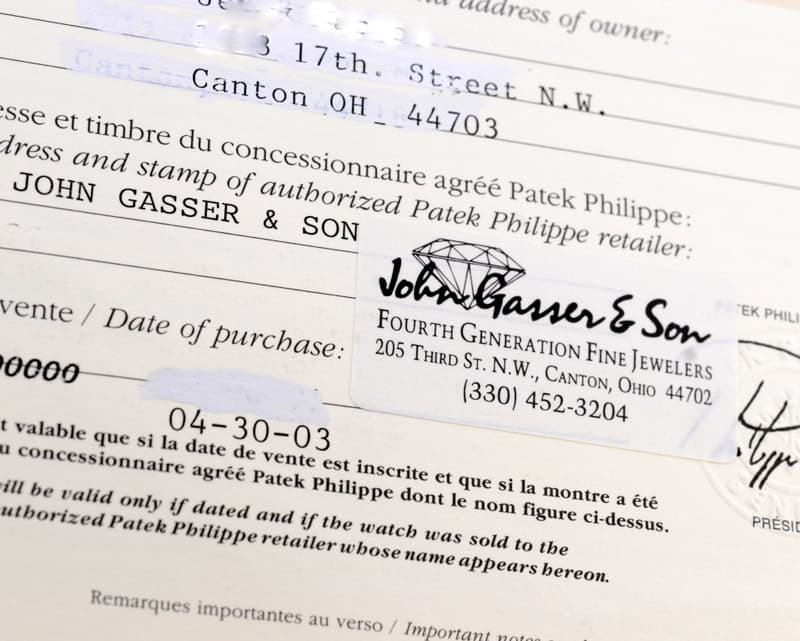 address of owner:
17th. Street N.W.
Canton OH 44703
esse et timbre du concessionnaire agréé Patek Philippe:
dress and stamp of authorized Patek Philippe retailer:
JOHN GASSER & SON
John Gasser & Son
FOURTH GENERATION FINE JEWELERS
205 THIRD ST. N.W., CANTON, OHIO 44702
(330) 452-3204
TEK PHILI
vente / Date of purchase:
00000
04-30-03
t valable que si la date de vente est inscrite et que si la montre a été
u concessionnaire agréé Patek Philippe dont le nom figure ci-dessus.
ill be valid only if dated and if the watch was sold to the
uthorized Patek Philippe retailer whose name appears hereon.
PRÉSID
Remarques importantes au verso / Important notes